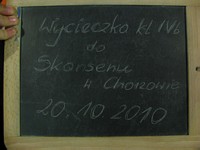 Wycieczka kl IVb
do
Skansenu
w Chorzowie
20.10 2010